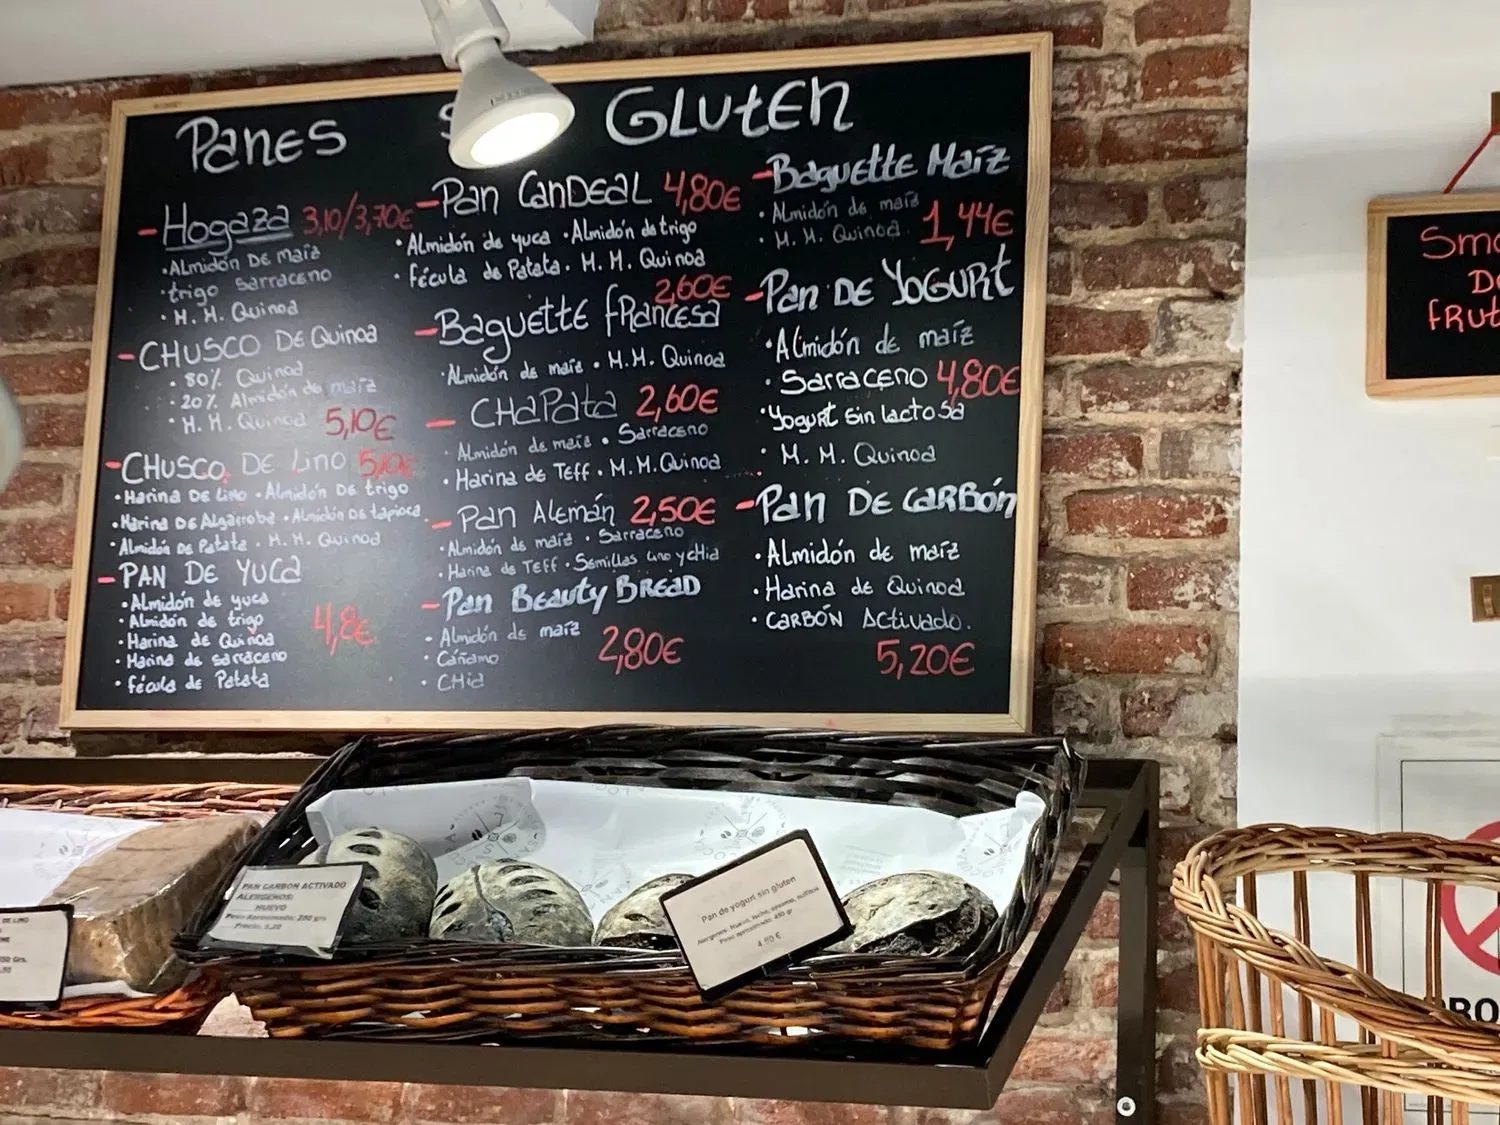 PANES GLUTEN
- Hogaza 3,10/3,70€
· Almidón De maíz
· trigo sarraceno
· M. M. Quinoa
- CHUSCO DE Quinoa
· 80% Quinoa
· 20% Almidón de maíz
· M. M. Quinoa 5,10€
- CHUSCO DE Lino 5,10€
· Harina De Lino · Almidón De trigo
· Harina De Algarroba · Almidón De tapioca
· Almidón De Patata · M. M. Quinoa
- PAN DE YUCA
· Almidón de yuca
· Almidón de trigo
· Harina de Quinoa
· Harina de sarraceno
· fécula de Patata
4,8€
- Pan CanDEAL 4,80€
· Almidón de yuca · Almidón de trigo
· fécula de Patata · M. M. Quinoa
2,60€
- Baguette francesa
· Almidón de maíz · M. M. Quinoa
- CHAPata 2,60€
· Almidón de maíz · Sarraceno
· Harina de Teff · M. M. Quinoa
- Pan Alemán 2,50€
· Almidón de maíz · Sarraceno
· Harina de Teff · Semillas Lino y chía
- Pan Beauty BREAD
· Almidón de maíz
· Cáñamo
· CHía
2,80€
- Baguette Maíz
· Almidón de maíz
· M. M. Quinoa 1,44€
- Pan DE YOGURT
· Almidón de maíz
· Sarraceno 4,80€
· Yogurt sin lactosa
· M. M. Quinoa
- Pan De carbón
· Almidón de maíz
· Harina de Quinoa
· CARBÓN Activado.
5,20€
PAN CARBON ACTIVADO
ALERGENOS:
HUEVO
Peso Aproximado: 250 grs
Precio: 5,20
Pan de yogurt sin gluten
Alergenos: Huevo, leche, sésamo, sulfitos
Peso aproximado: 450 gr
4.80 €
DE LINO